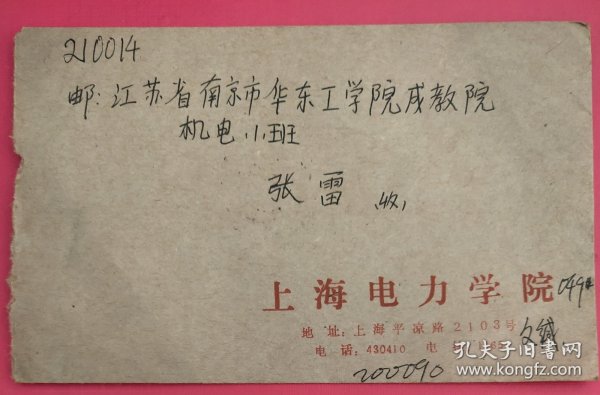 210014
邮:江苏省南京市华东工学院成教院
机电八班
张雷 收
上海电力学院
地址:上海平凉路2103号
电话:430410 电
200090
孔夫子旧书网
www.kongfz.com